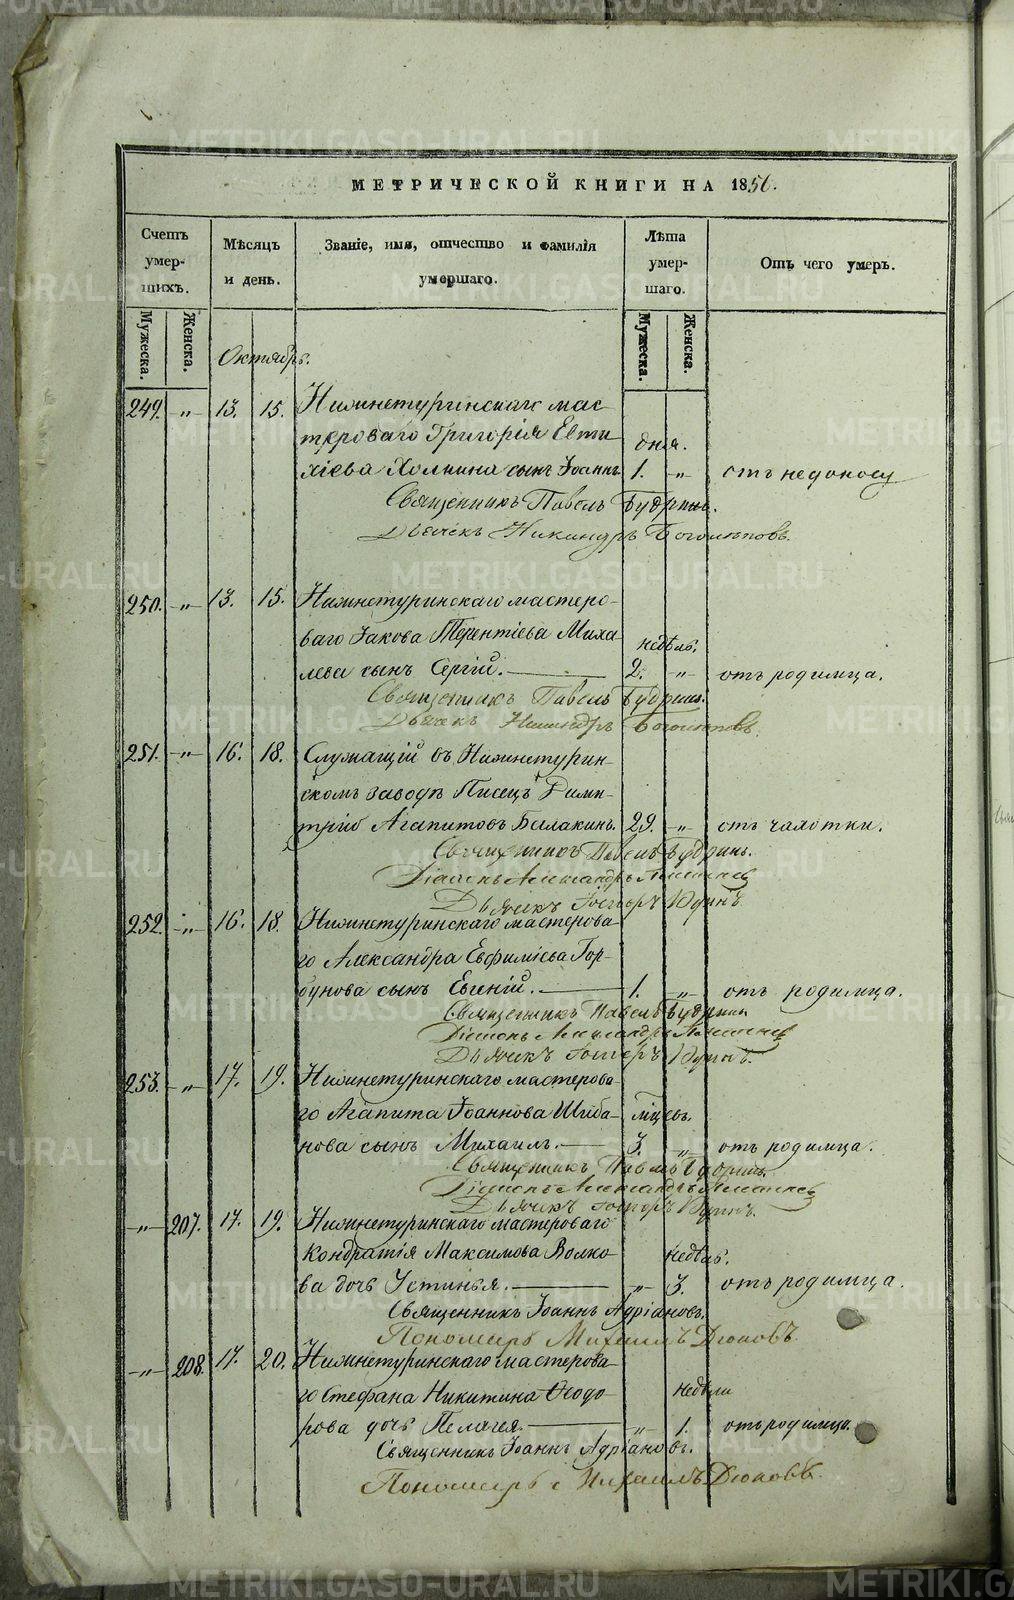 МЕТРИЧЕСКОЙ КНИГИ НА 1856.
Счетъ умер- шихъ.
Мѣсяцъ и день.
Званіе, имя, отчество и фамилія умершаго.
Лѣта умер- шаго.
Отъ чего умеръ.
Мужеска. Женска.
Мужеска. Женска.
Октябрь.
249. „ 13. 15. Нижнетуринскаго мас-
тероваго Григорія Евти- дня.
хіева сынъ Іоаннъ 1. „ отъ недоносу
Священникъ Павелъ Будринъ.
Дьячекъ Никандръ
250. „ 13. 15. Нижнетуринскаго мастеро-
ваго Іакова Терентіева Миха- недѣль.
лева сынъ Сергій. 2. „ отъ родимца.
Священникъ Павелъ Будринъ.
Дьячекъ Никандръ
251. „ 16. 18. Служащій въ Нижнетурин-
скомъ заводѣ Писецъ Дими-
трій Агапитовъ Балакинъ. 29. „ отъ чахотки.
Священникъ Павелъ Будринъ.
Діаконъ Александръ
Дьячекъ
252. „ 16. 18. Нижнетуринскаго мастерова-
го Александра Евфиміева Гор-
бунова сынъ Евгеній. 1. „ отъ родимца.
Священникъ Павелъ Будринъ
Діаконъ Александръ
Дьячекъ
253. „ 17. 19. Нижнетуринскаго мастерова-
го Агапита Іоаннова Шиба- мѣсяцъ.
нова сынъ Михаилъ. 3. „ отъ родимца.
Священникъ Павелъ Будринъ.
Діаконъ Александръ
Дьячекъ
„ 207. 17. 19. Нижнетуринскаго мастероваго
Кондратія Максимова Волко- недѣль.
ва дочь Устинья. „ 3. отъ родимца.
Священникъ Іоаннъ Адріановъ.
Пономарь Михаилъ Дюковъ.
„ 208. 17. 20. Нижнетуринскаго мастерова-
го Стефана Никитина Ѳедо- недѣли
рова дочь Пелагея. „ 1. отъ родимца.
Священникъ Іоаннъ Адріановъ.
Пономарь Михаилъ Дюковъ.
METRIKI.GASO-URAL.RU